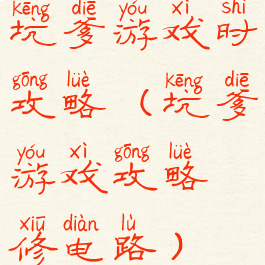 kēng diē yóu xì shí
坑爹游戏时
gōng lüè kēng diē
攻略(坑爹
yóu xì gōng lüè
游戏攻略
xiū diàn lù
修电路)